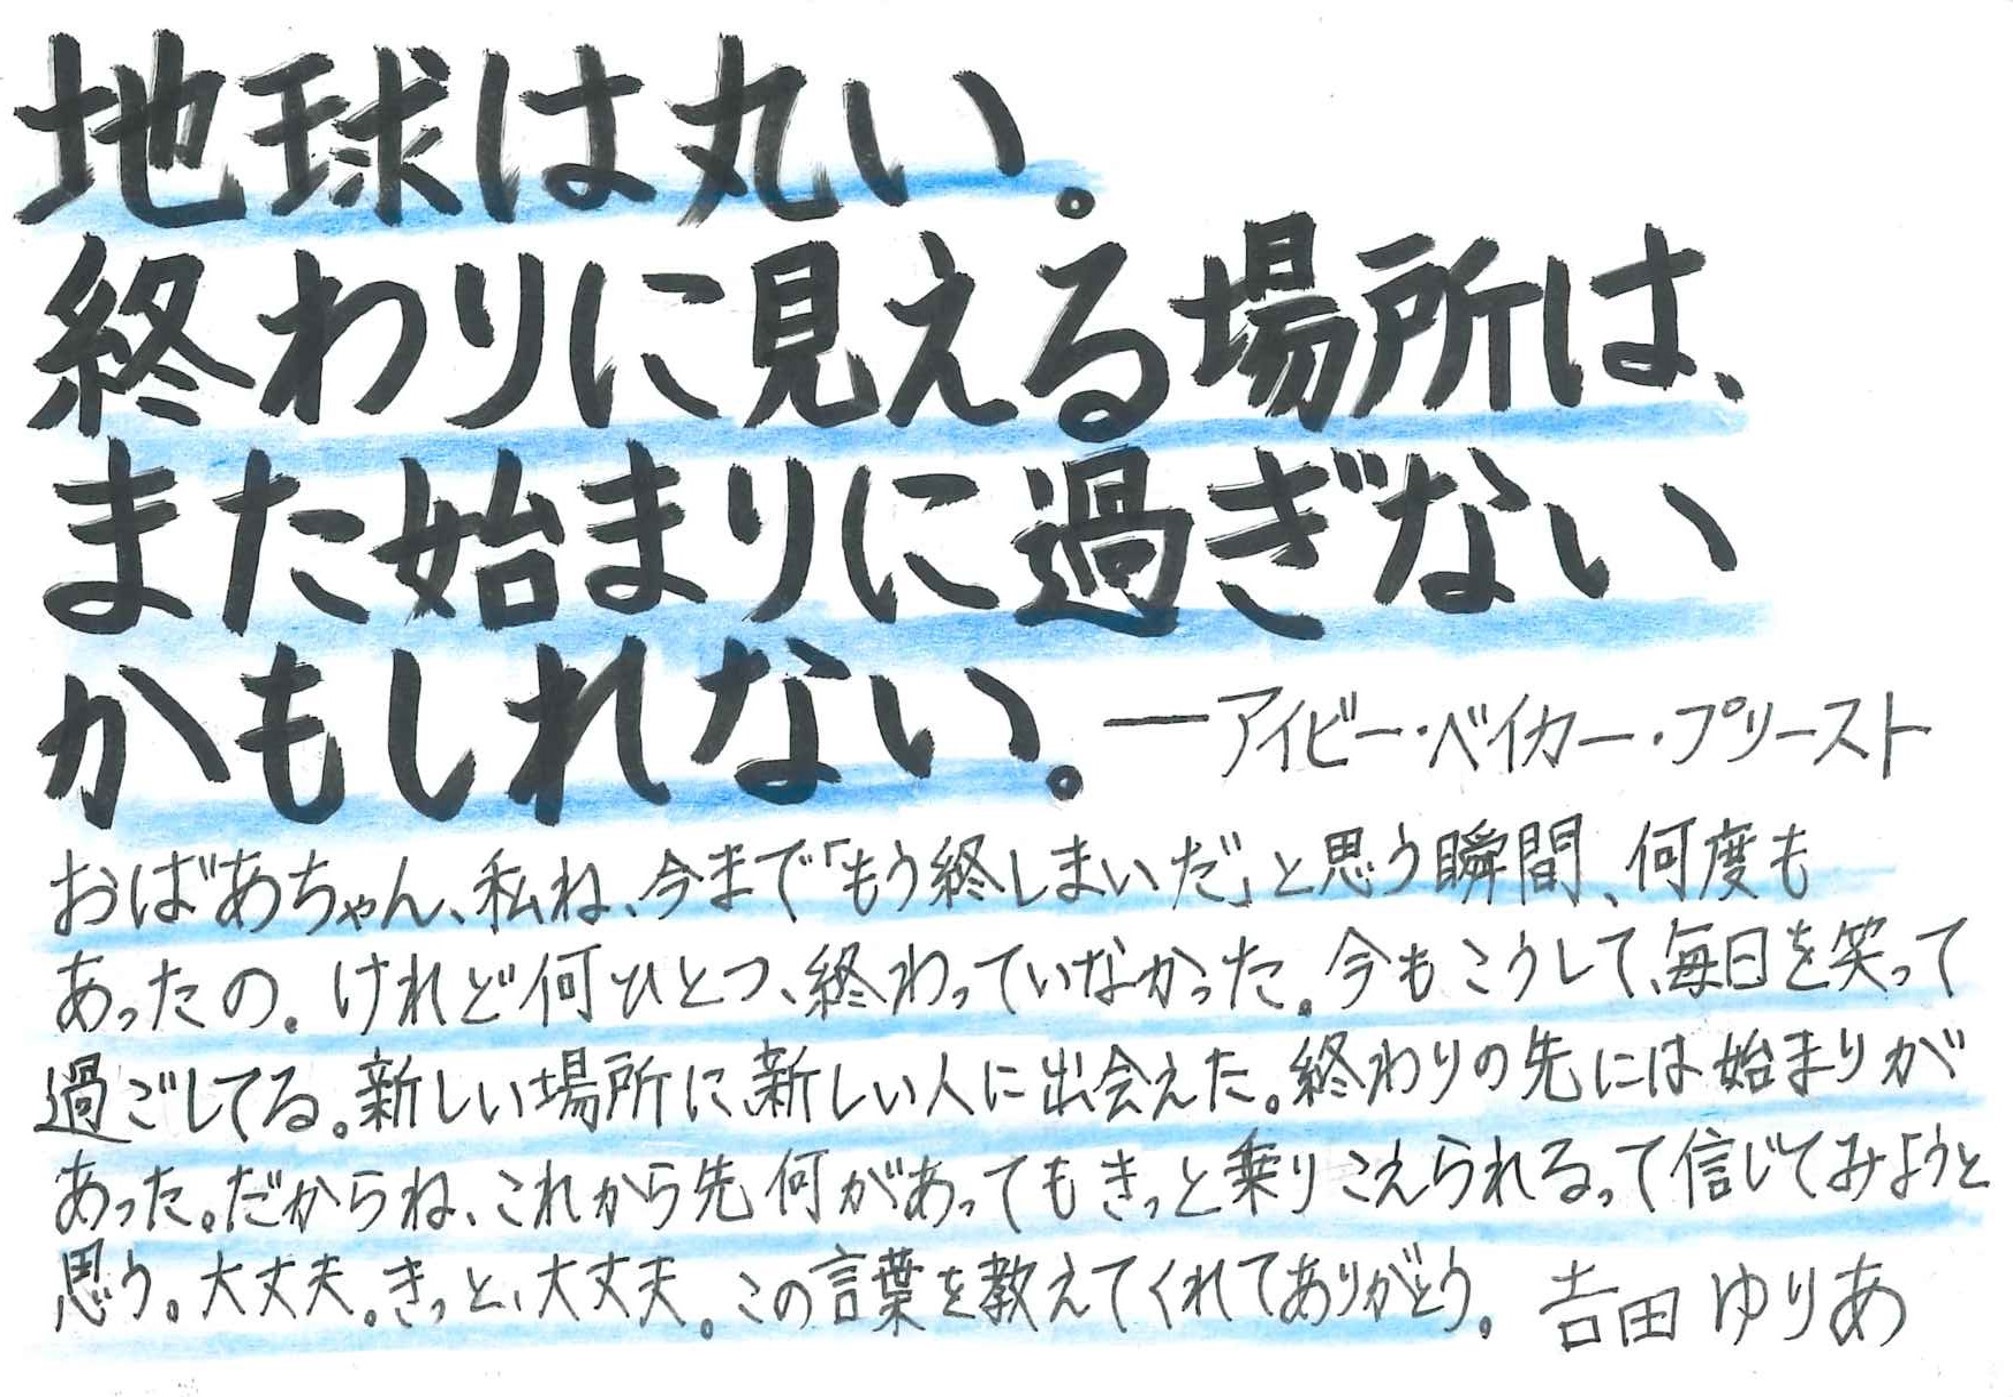 地球は丸い。
終わりに見える場所は、
また始まりに過ぎない
かもしれない。 ―アイビー・ベイカー・プリースト
おばあちゃん、私ね、今まで「もう終しまいだ」と思う瞬間、何度も
あったの。けれど何ひとつ、終わっていなかった。今もこうして、毎日を笑って
過ごしてる。新しい場所に、新しい人に出会えた。終わりの先には始まりが
あった。だからね、これから先何があってもきっと乗りこえられるって信じてみようと
思う。大丈夫。きっと、大丈夫。この言葉を教えてくれてありがとう。 吉田ゆりあ